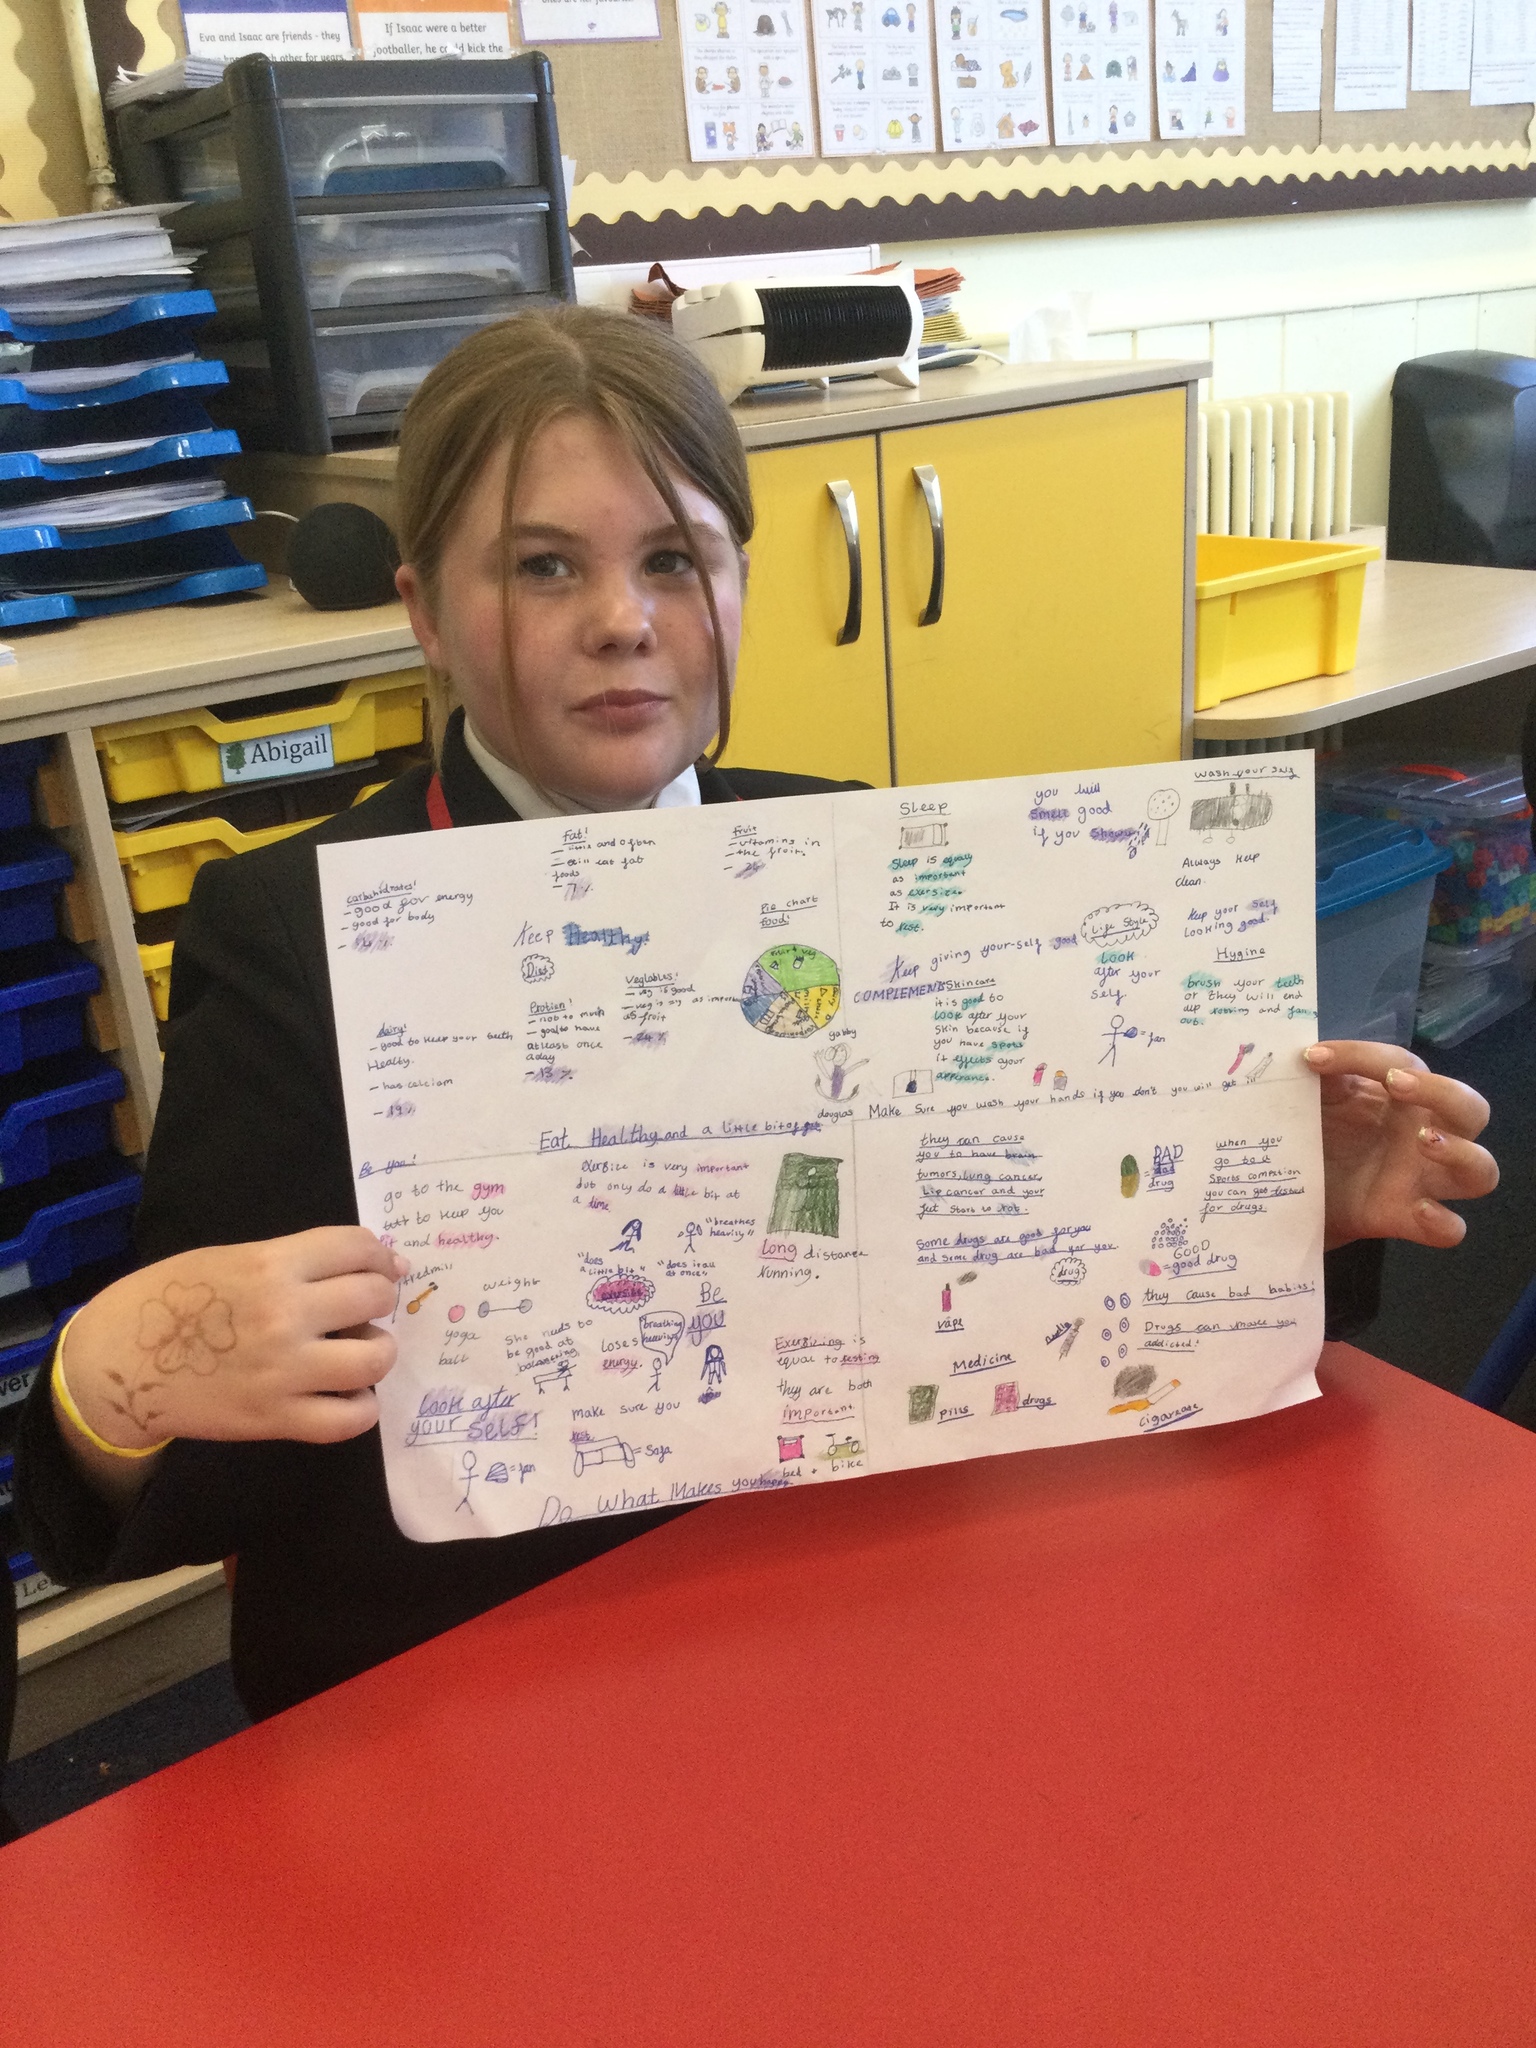 Eva and Isaac are friends - they
If Isaac were a better
footballer, he could kick the
Abigail
carbohidrates!
- good for energy
- good for body
Fat!
- little and often
- still eat fat
foods
- 7%
fruit
- vitamins in
- the fruit.
Keep Healthy!
Diet
Pie chart
food!
dairy!
- good to keep your teeth
Healty.
- has calciam
- 19%
Protien!
- not to much
- goal to have
at least once
a day
- 13%
Veglables!
- veg is good
- veg is as important
as fruit
- 24%
gabby
douglas
Eat Healthy and a little bit of fat
Sleep
Sleep is equaly
as important
as exersize.
It is very important
to rest.
you will
smell good
if you shower
wash your self
Always keep
clean.
Keep your self
looking good!
Life Style
Look
after your
self.
= fan
Keep giving your-self good
COMPLEMENTS
Skincare
it is good to
look after your
skin because if
you have spots
it effects your
apperance.
Hygine
brush your teeth
or they will end
up rotting and
out.
Make sure you wash your hands if you don't you will get ill
Be you!
go to the gym
to keep you
fit and healthy.
tredmill
weight
yoga
ball
exersize is very important
but only do a little bit at
a time
"does
a little bit"
"breathes
heavily"
"does it all
at once"
exersize
She needs to
be good at
balancing
loses
energy.
breathing
heavily
Be
you
make sure you
rest.
= Sofa
look after
your self!
= fan
Long distance
running.
Exersizing is
equal to resting
they are both
important
bed + bike
Do What Makes you happy
they can cause
you to have brain
tumors, lung cancer,
Lip cancer and your
feet start to rot.
BAD
= bad
drug
when you
go to a
Sports compation
you can get tested
for drugs.
Some drugs are good for you
and some drug are bad for you.
drug
GOOD
= good drug
vape
needle
they cause bad babies!
Drugs can make you
addicted!
Medicine
pills
drugs
cigarzase